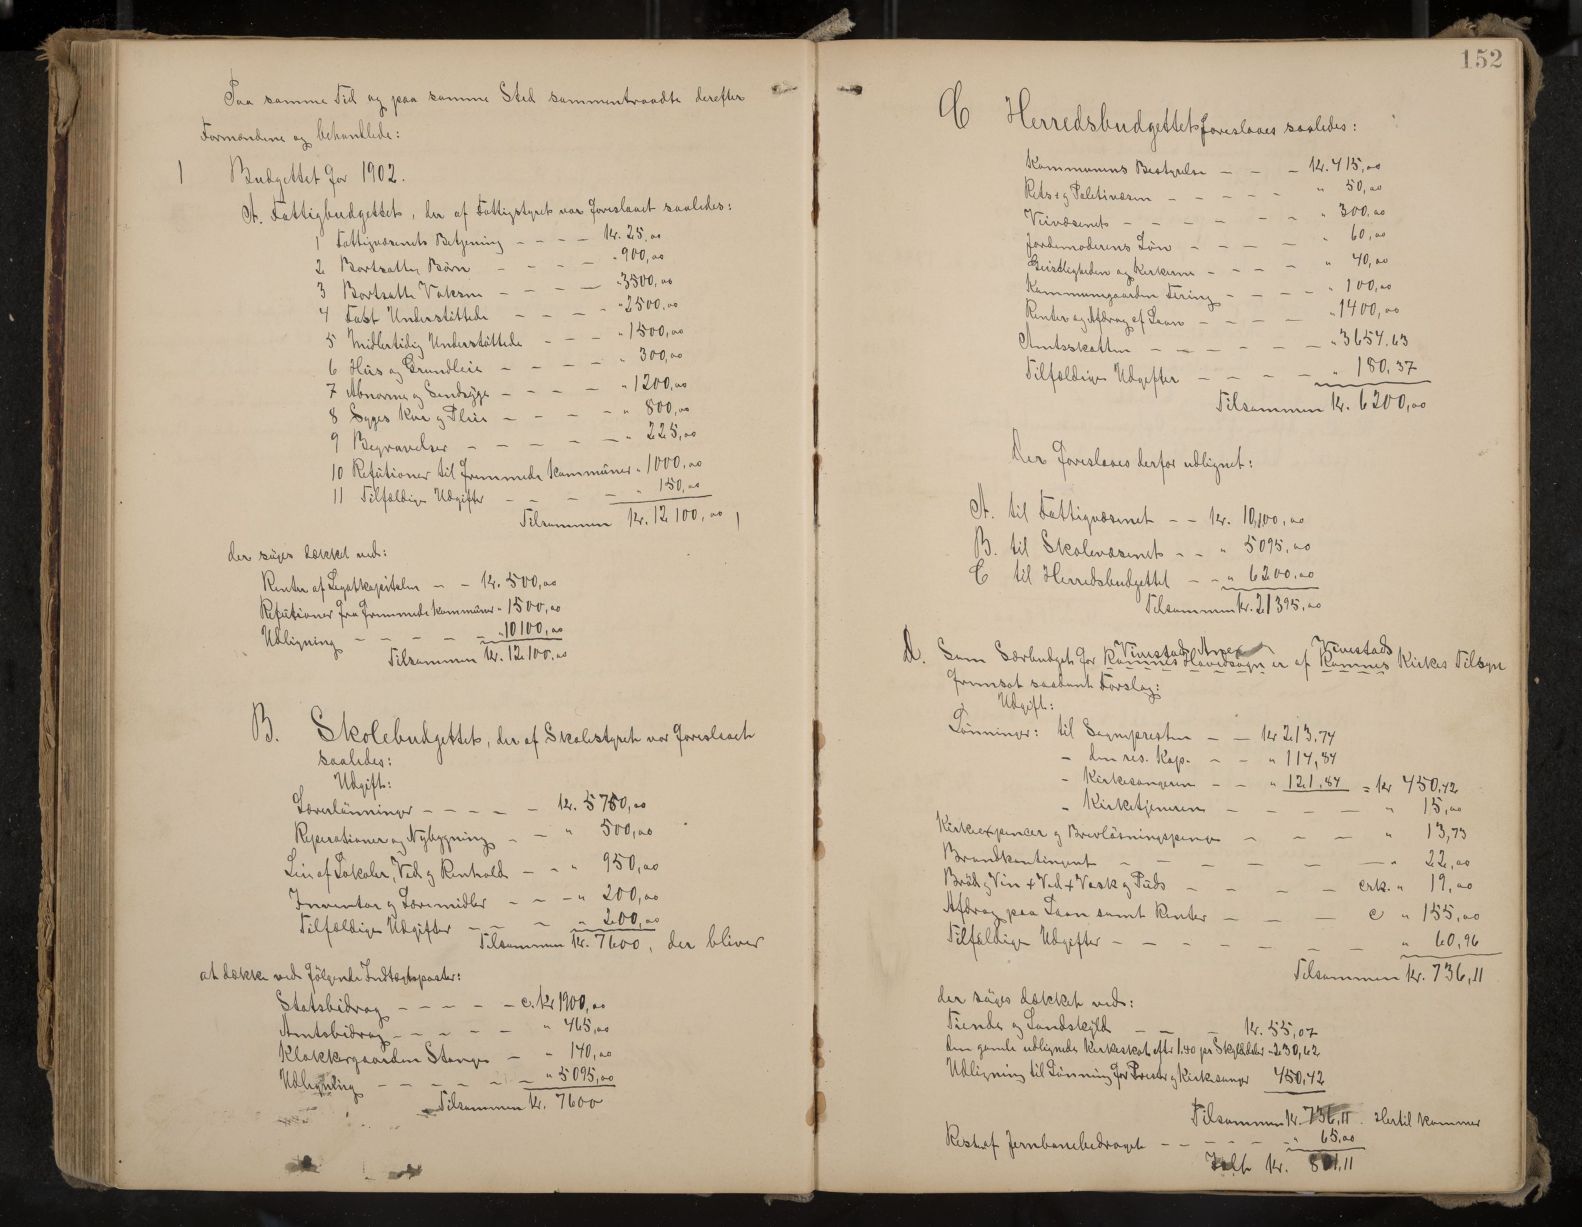 Paa samme Tid og paa samme Sted sammentraadte derefter
Formændene og behandlede:
1 Budgettet for 1902.
A. Fattigbudgettet, der af Fattigstyret var foreslaaet saaledes:
1 Fattigvæsenets Betjening - - - - Kr. 25,00
2 Bortsatte Børn - - - - - " 900,00
3 Bortsatte Voksne - - - - - " 3500,00
4 Fast Understöttede - - - - " 2500,00
5 Midlertidig Understöttede - - - " 1500,00
6 Hus og Grundleie - - - - - " 300,00
7 Abnorme og Sindsyge - - - - " 1200,00
8 Syges Kur og Pleie - - - - " 800,00
9 Begravelser - - - - - - " 225,00
10 Refutioner til fremmede Kommuner " 1000,00
11 Tilfældige Udgifter - - - - " 150,00
Tilsammen Kr. 12100,00
der söges dækket ved:
Renter af Legatkapitalen - - Kr. 500,00
Refutioner fra fremmede Kommuner " 1500,00
Udligning - - - - - " 10100,00
Tilsammen Kr. 12100,00
B. Skolebudgettet, der af Skolestyret var foreslaaet
saaledes:
Udgift:
Lærerlönninger - - - - - Kr. 5750,00
Reperationer og Nybygning - - " 500,00
Leie af Lokaler, Ved og Renhold - - " 950,00
Inventar og Læremidler - - - " 200,00
Tilfældige Udgifter - - - " 200,00
Tilsammen Kr. 7600, der bliver
at dække ved fölgende Indtægtsposter:
Statsbidrag - - - - - c. Kr 1900,00
Amtsbidrag - - - - - " 465,00
Klokkergaarden Stange - " 140,00
Udligning - - - - - - " 5095,00
Tilsammen Kr. 7600
152
C Herredsbudgettet foreslaaes saaledes:
Kommunens Bestyrelse - - - Kr. 415,00
Rets- og Politivæsen - - - - - " 50,00
Veivæsenet - - - - - - - " 300,00
Jordemoderens Løn - - - - - " 60,00
Geistligheden og Kirkerne - - - - " 40,00
Kommunegaarden Tering - - - - " 100,00
Renter og Afdrag af Laan - - - - " 1400,00
Amtsskatten - - - - - - " 3654.63
Tilfældige Udgifter - - - - " 180,37
Tilsammen Kr. 6200,00
Der foreslaaes derfor udlignet:
A. til Fattigvæsenet - - Kr. 10,100,00
B. til Skolevæsenet - - " 5095,00
C til Herredsbudgettet - - " 6200,00
Tilsammen Kr. 21395,00
Vivestad Annex Vivestads
D. Som Særbudget for Ramnes Hovedsogn er af Ramnes Kirkes Tilsyn
fremsat saadant Forslag:
Udgift:
Lønninger: til Sognepresten - - Kr 213,74
- den res. Kap. - - " 114,84
- Kirkesangeren - - " 121,84 = Kr 450,42
- Kirketjeneren - - - - - " 15,00
Kirkeexpencer og Brevløsningspenge - - - - " 13,73
Brandkontingent - - - - - - - " 22,00
Bröd og Vin + Ved + Vask og Puds - - - - crk. " 19,00
Afdrag paa Laan samt Renter - - - c " 155,00
Tilfældige Udgifter - - - - - - - - " 60,96
Tilsammen Kr. 736,11
der söges dækket ved:
Tiende og Landskyld - - - Kr. 55,07
den gamle udlignede Kirkeskat efter 1.40 pr Skylddaler " 230,62
Udligning til Lønning for Prester og Kirkesanger 450,42
Tilsammen Kr. 736,11. Hertil kommer
Rest af Jernbanebidraget - - - - - - " 65,00
Ialt Kr. 801,11